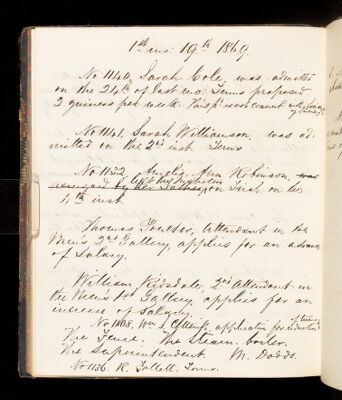 1st mo: 19th 1869.
No 1140, Sarah Cole, was admitted
on the 24th of last mo. Terms proposed
2 guineas per week.
No 1141, Sarah Williamson, was ad-
mitted on the 2nd inst. Terms
No 1132 Ann Robinson, was
removed by her Father, on Trial on the
4th inst
Thomas Poulter, Attendant in the
Men's 2nd Gallery, applies for an advance
of Salary.
William Kidsdale, 2nd Attendant in
the Men's 1st Gallery, applies for an
increase of Salary.
No 1108. Wm application for reduction of terms
The Fence. The Steam-boiler.
The Superintendent M. Dodds.
No 1136. R. Follett. Terms.